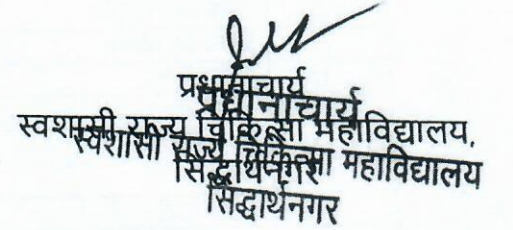 प्रधानाचार्य
प्रधानाचार्य
स्वशासी राज्य चिकित्सा महाविद्यालय,
स्वशासी राज्य चिकित्सा महाविद्यालय
सिद्धार्थनगर
सिद्धार्थनगर